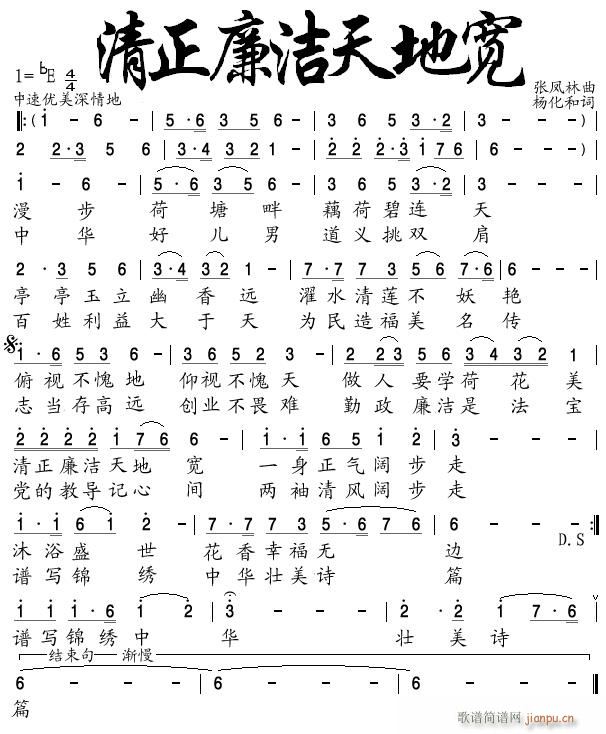 清正廉洁天地宽
1=♭E 4/4
张凤林曲
中速优美深情地
杨化和词
‖:(i - 6 - | 5·6 3 5 - | 3 6 5 3·2 | 3 - - -)|
2 2·3 5 6 | 3·4 3 2 1 - | 2̇ 2̇ 2̇·3̇ i 7 6 | 6 - - -)|
i - 6 - | 5·6 3 5 - | 3 6 5 3·2 | 3 - - - |
漫 步 荷 塘 畔 藕 荷 碧 连 天
中 华 好 儿 男 道 义 挑 双 肩
2·3 5 6 | 3·4 3 2 1 - | 7·7 7 3 5 7·6 | 6 - - - |
亭 亭 玉 立 幽 香 远 濯 水 清 莲 不 妖 艳
百 姓 利 益 大 于 天 为 民 造 福 美 名 传
i·6 5 3 5 2 - | 3 6 5 2 3 - | 2 2 3 5 6 3 4 3 2 1 |
俯 视 不 愧 地 仰 视 不 愧 天 做 人 要 学 荷 花 美
志 当 存 高 远 创 业 不 畏 难 勤 政 廉 洁 是 法 宝
2̇ 2̇ 2̇ 2̇ i 7 6 | 6 - - - | i·i 6 5 i 2̇ | 3̇ - - - |
清 正 廉 洁 天 地 宽 一 身 正 气 阔 步 走
党 的 教 导 记 心 间 两 袖 清 风 阔 步 走
i·i 6 i 2̇ - | 7·7 7 3 5·6 7 6 | 6 - - - :‖
D.S
沐 浴 盛 世 花 香 幸 福 无 边
谱 写 锦 绣 中 华 壮 美 诗 篇
i i i·6 i 2̇ | 3̇ - - - | 2̇·2̇ i 7·6 |
谱 写 锦 绣 中 华 壮 美 诗
结束句 渐慢
6 - - - | 6 - - - | 6 - - - | 6 - - - :‖
篇
歌谱简谱网
jianpu.cn